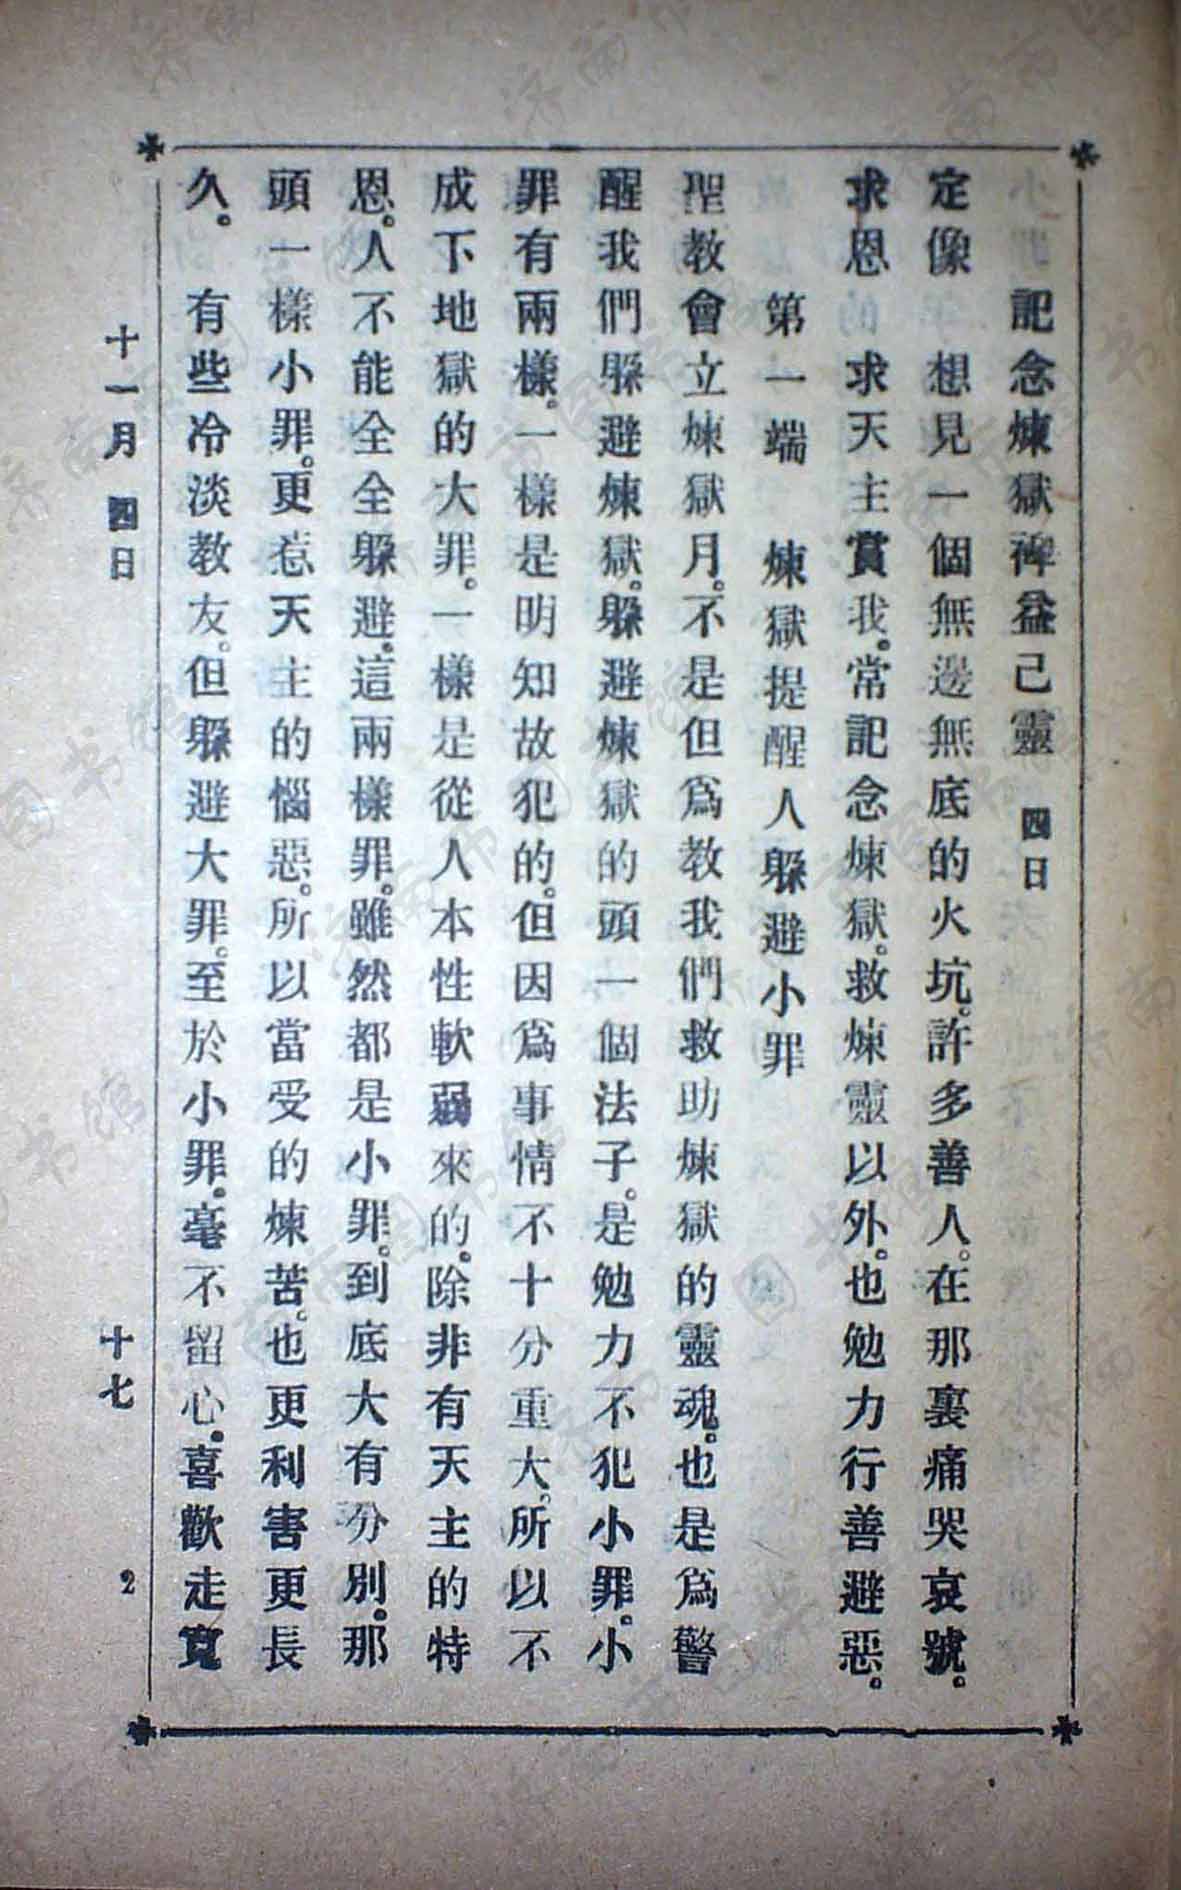 記念煉獄裨益己靈 四日
定像 想見一個無邊無底的火坑。許多善人。在那裏痛哭哀號。
求恩 求天主賞我。常記念煉獄。救煉靈以外。也勉力行善避惡。
第一端 煉獄提醒人躲避小罪
聖教會立煉獄月。不是但爲教我們救助煉獄的靈魂。也是爲警
醒我們躲避煉獄。躲避煉獄的頭一個法子。是勉力不犯小罪。小
罪有兩樣。一樣是明知故犯的。但因爲事情不十分重大。所以不
成下地獄的大罪。一樣是從人本性軟弱來的。除非有天主的特
恩。人不能全全躲避。這兩樣罪。雖然都是小罪。到底大有分別。那
頭一樣小罪。更惹天主的惱惡。所以當受的煉苦。也更利害更長
久。 有些冷淡教友。但躲避大罪。至於小罪。毫不留心。喜歡走寬
十一月 四日 十七 2
济南市图书馆